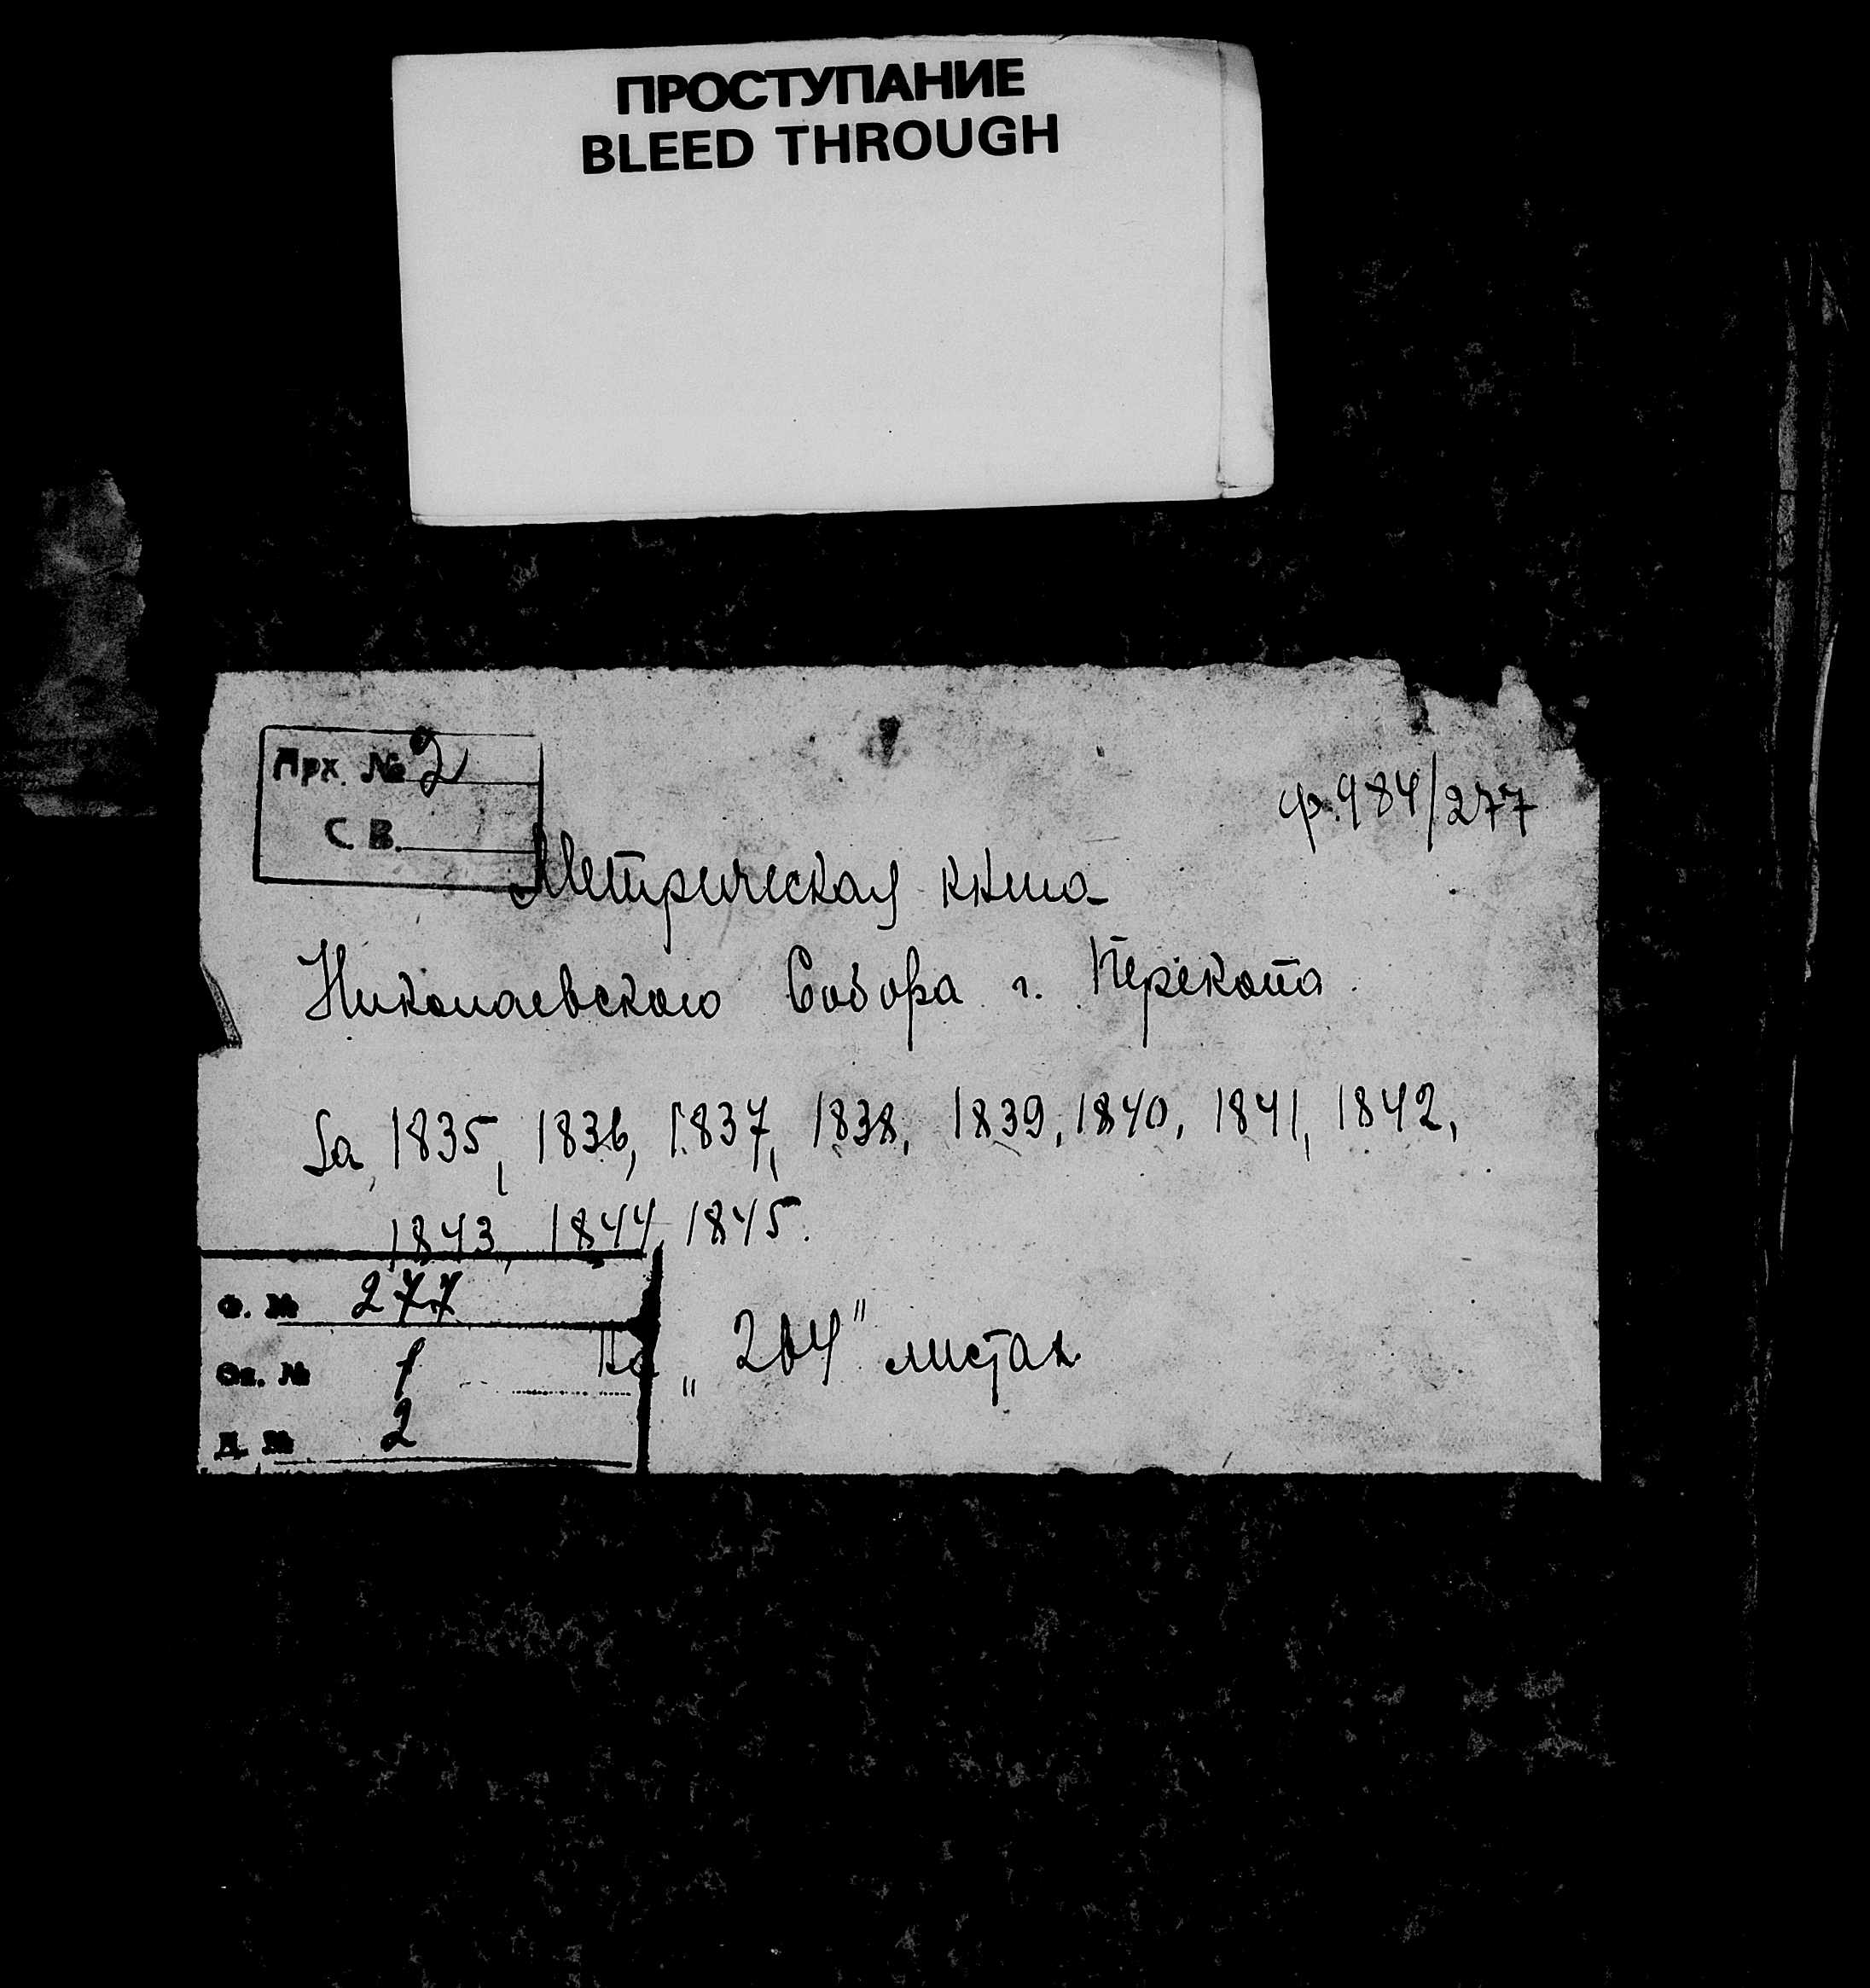 ПРОСТУПАНИЕ
BLEED THROUGH
Арх. № 2
С. В.
ф. 984/277
Метрическая книга
Николаевского Собора г. Перекопа
За 1835, 1836, 1837, 1838, 1839, 1840, 1841, 1842,
1843, 1844, 1845.
Ф. № 277
Оп. № 1
Д. № 2
На „264" листах